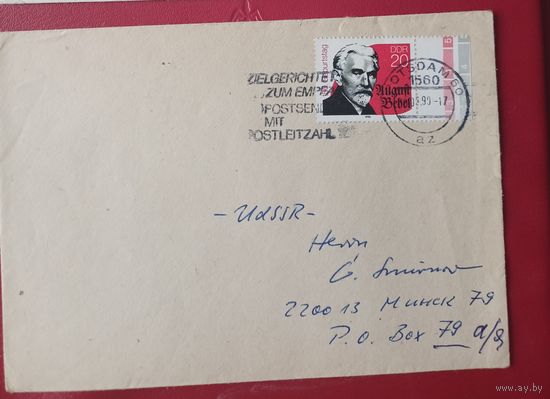 ZIELGERICHTET
ZUM EMPF
POSTSEN
MIT
POSTLEITZAHL
burtstag
DDR
20
August
Bebel
POTSDAM 60
1560
.90 -17
az
- UdSSR -
Herrn
G. Smirnov
220013 МИНСК 79
P. O. Box 79 а/я
www.ay.by